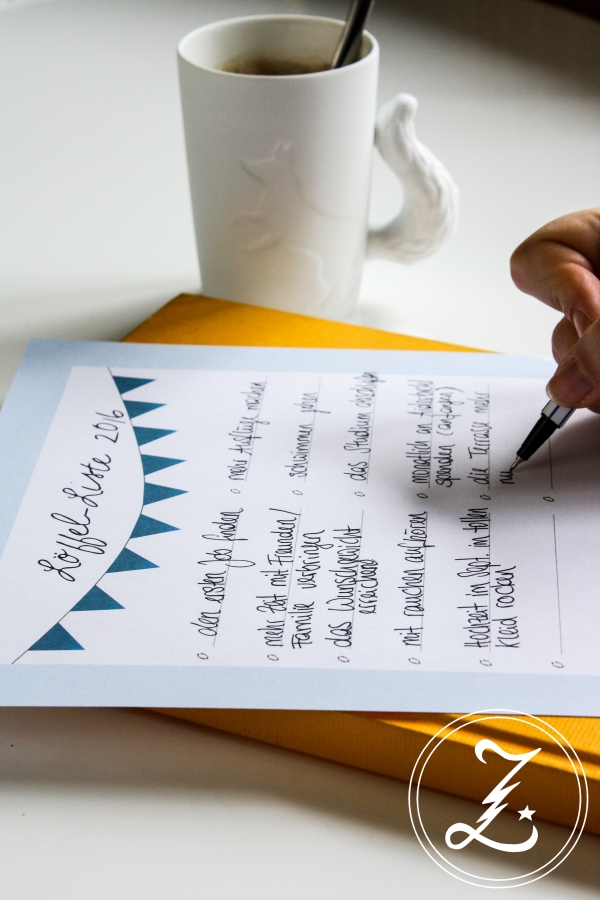 Löffel-Liste 2016
den ersten Job finden
mehr Zeit mit Freunden/
Familie verbringen
das Wunschgewicht
erreichen
mit rauchen aufhören
Hochzeit im Sept. im tollen
Kleid rocken
mehr Ausflüge machen
schwimmen gehen
das Studium
monatlich an
spenden (anfangen)
die Terrasse mehr
nu
Z